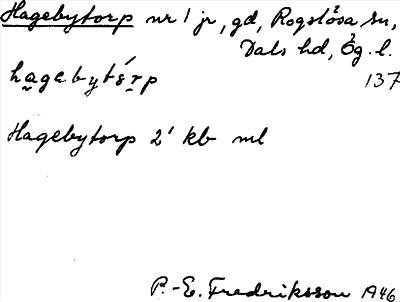 Hagebytorp nr 1 jr, gd, Rogslösa sn,
Dals hd, Ög. l.
hagebytårp 137
Hagebytorp 2' kb ml
P.-E. Fredriksson 1946